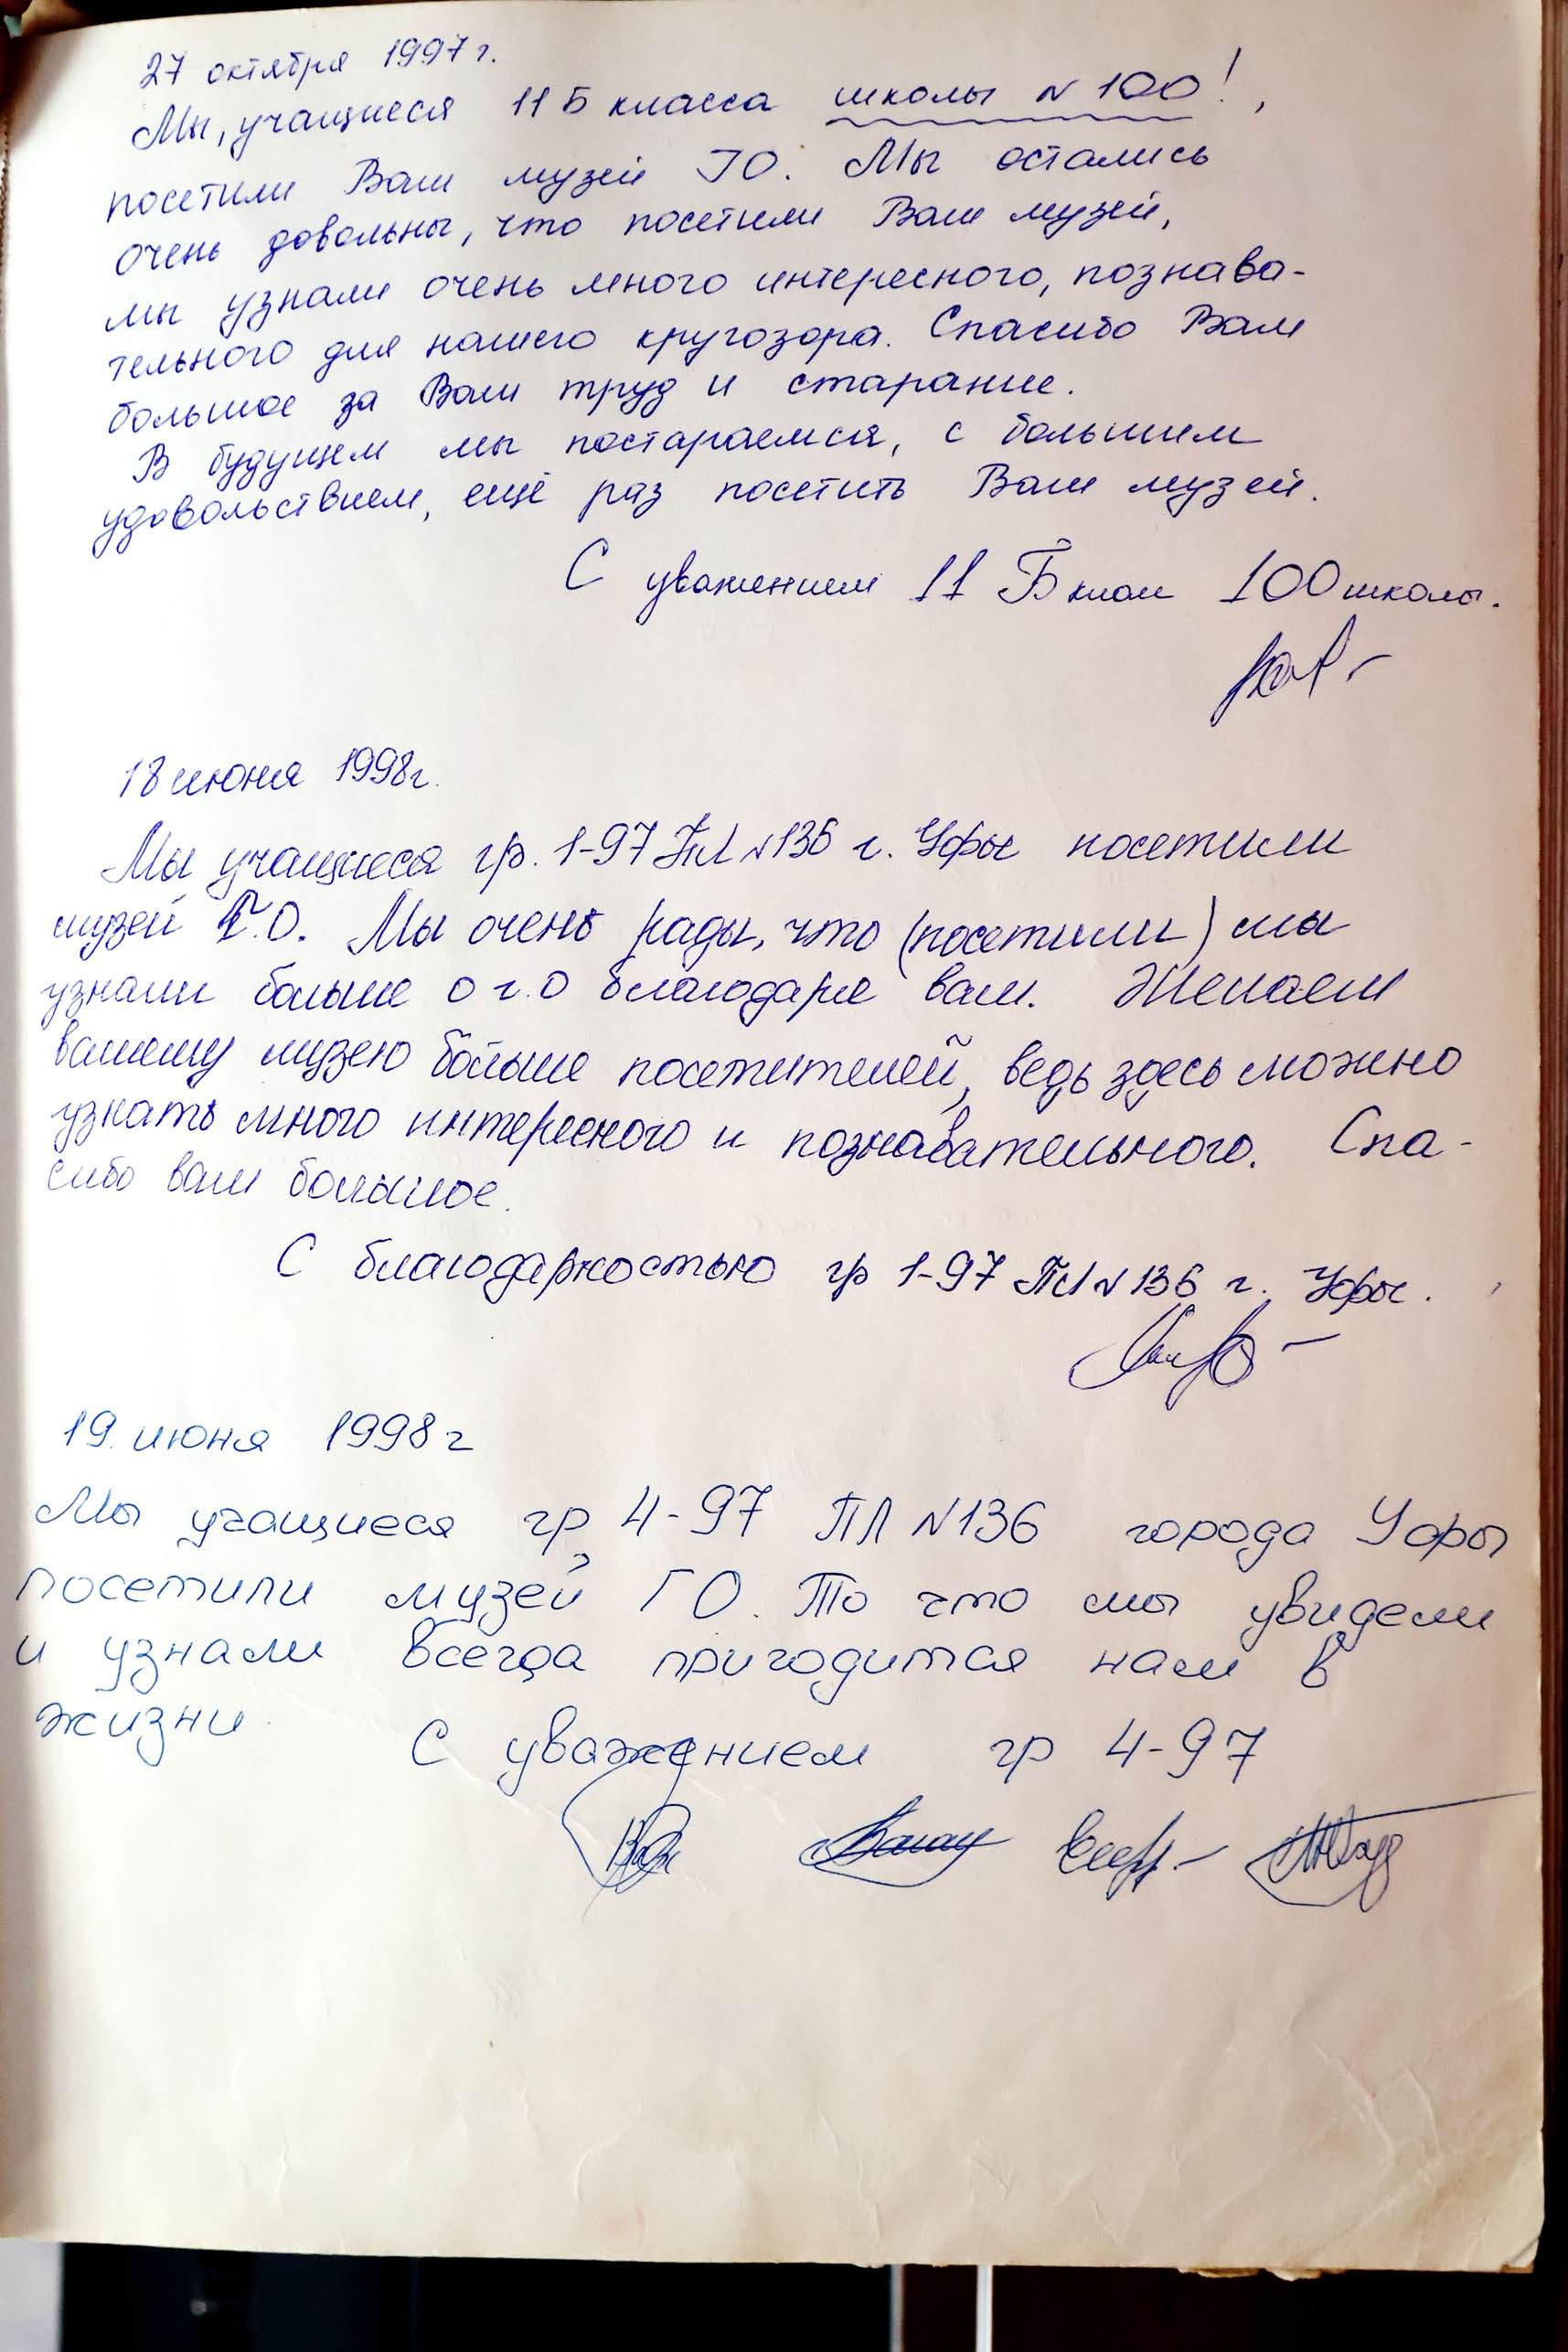 27 октября 1997 г.
Мы, учащиеся 11 Б класса школы № 100!,
посетили Ваш музей ГО. Мы остались
очень довольны, что посетили Ваш музей,
мы узнали очень много интересного, познава-
тельного для нашего кругозора. Спасибо Вам
большое за Ваш труд и старание.
В будущем мы постараемся, с большим
удовольствием, ещё раз посетить Ваш музей.
С уважением 11 Б класс 100 школы.
18 июня 1998г.
Мы учащиеся гр. 1-97 ПЛ №136 г. Уфы посетили
музей Г.О. Мы очень рады, что (посетили) мы
узнали больше о г.о благодаря вам. Желаем
вашему музею больше посетителей, ведь здесь можно
узнать много интересного и познавательного. Спа-
сибо вам большое.
С благодарностью гр 1-97 ПЛ №136 г. Уфы.
19. июня 1998 г
Мы учащиеся гр 4-97 ПЛ №136 города Уфы
посетили музей ГО. То что мы увидели
и узнали всегда пригодится нам в
жизни
С уважением гр 4-97